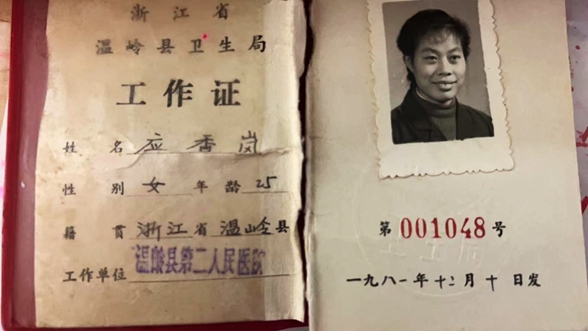 浙江省
温岭县卫生局
工作证
姓名 应香岗
性别 女 年龄 25
籍贯 浙江省温岭县
工作单位 温岭县第二人民医院
第001048号
一九八一年十二月十日发